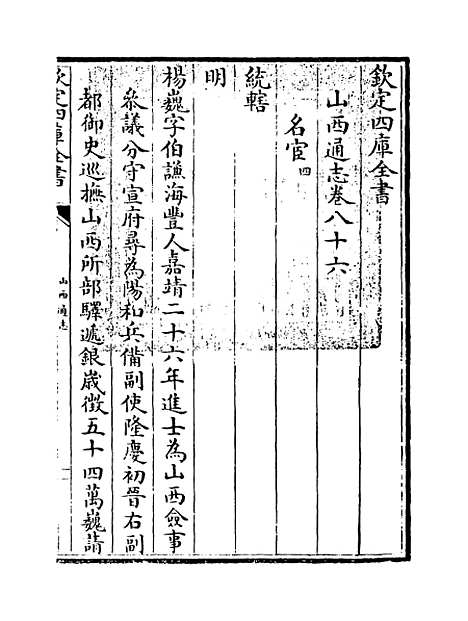 欽定四庫全書
山西通志卷八十六
名宦四
統轄
明
楊巍字伯謙海豐人嘉靖二十六年進士為山西僉事
叅議分守宣府尋為陽和兵備副使隆慶初晉右副
都御史巡撫山西所部驛遞銀歲徵五十四萬巍請
欽定四庫全書
山西通志